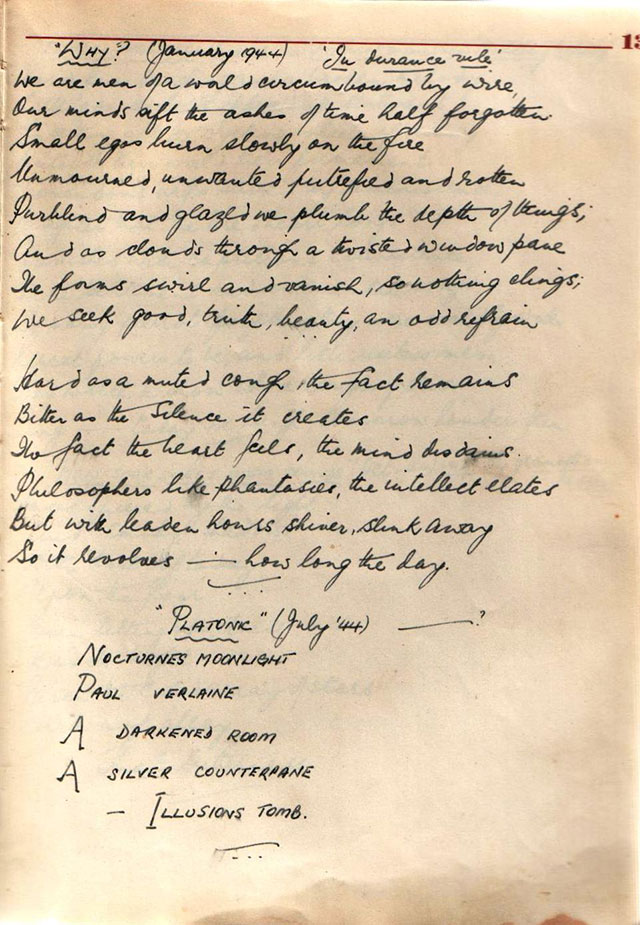 "WHY"? (January 1944) 'In durance vile' 13
We are men of a world circumbound by wire,
Our minds sift the ashes of time half forgotten.
Small egos burn slowly on the fire
Unmourned, unwanted putrefied and rotten
Purblind and glazed we plumb the depth of things;
And as clouds through a twisted window pane
The forms swirl and vanish, so nothing clings;
We seek good, truth, beauty, an odd refrain
Hard as a muted cough, the fact remains
Bitter as the silence it creates
The fact the heart feels, the mind disdains.
Philosophers like phantasies, the intellect elates
But with leaden hours shiver, slink away
So it revolves — how long the day.
"PLATONIC" (July '44) —?
NOCTURNES MOONLIGHT
PAUL VERLAINE
A DARKENED ROOM
A SILVER COUNTERPANE
— ILLUSIONS TOMB.